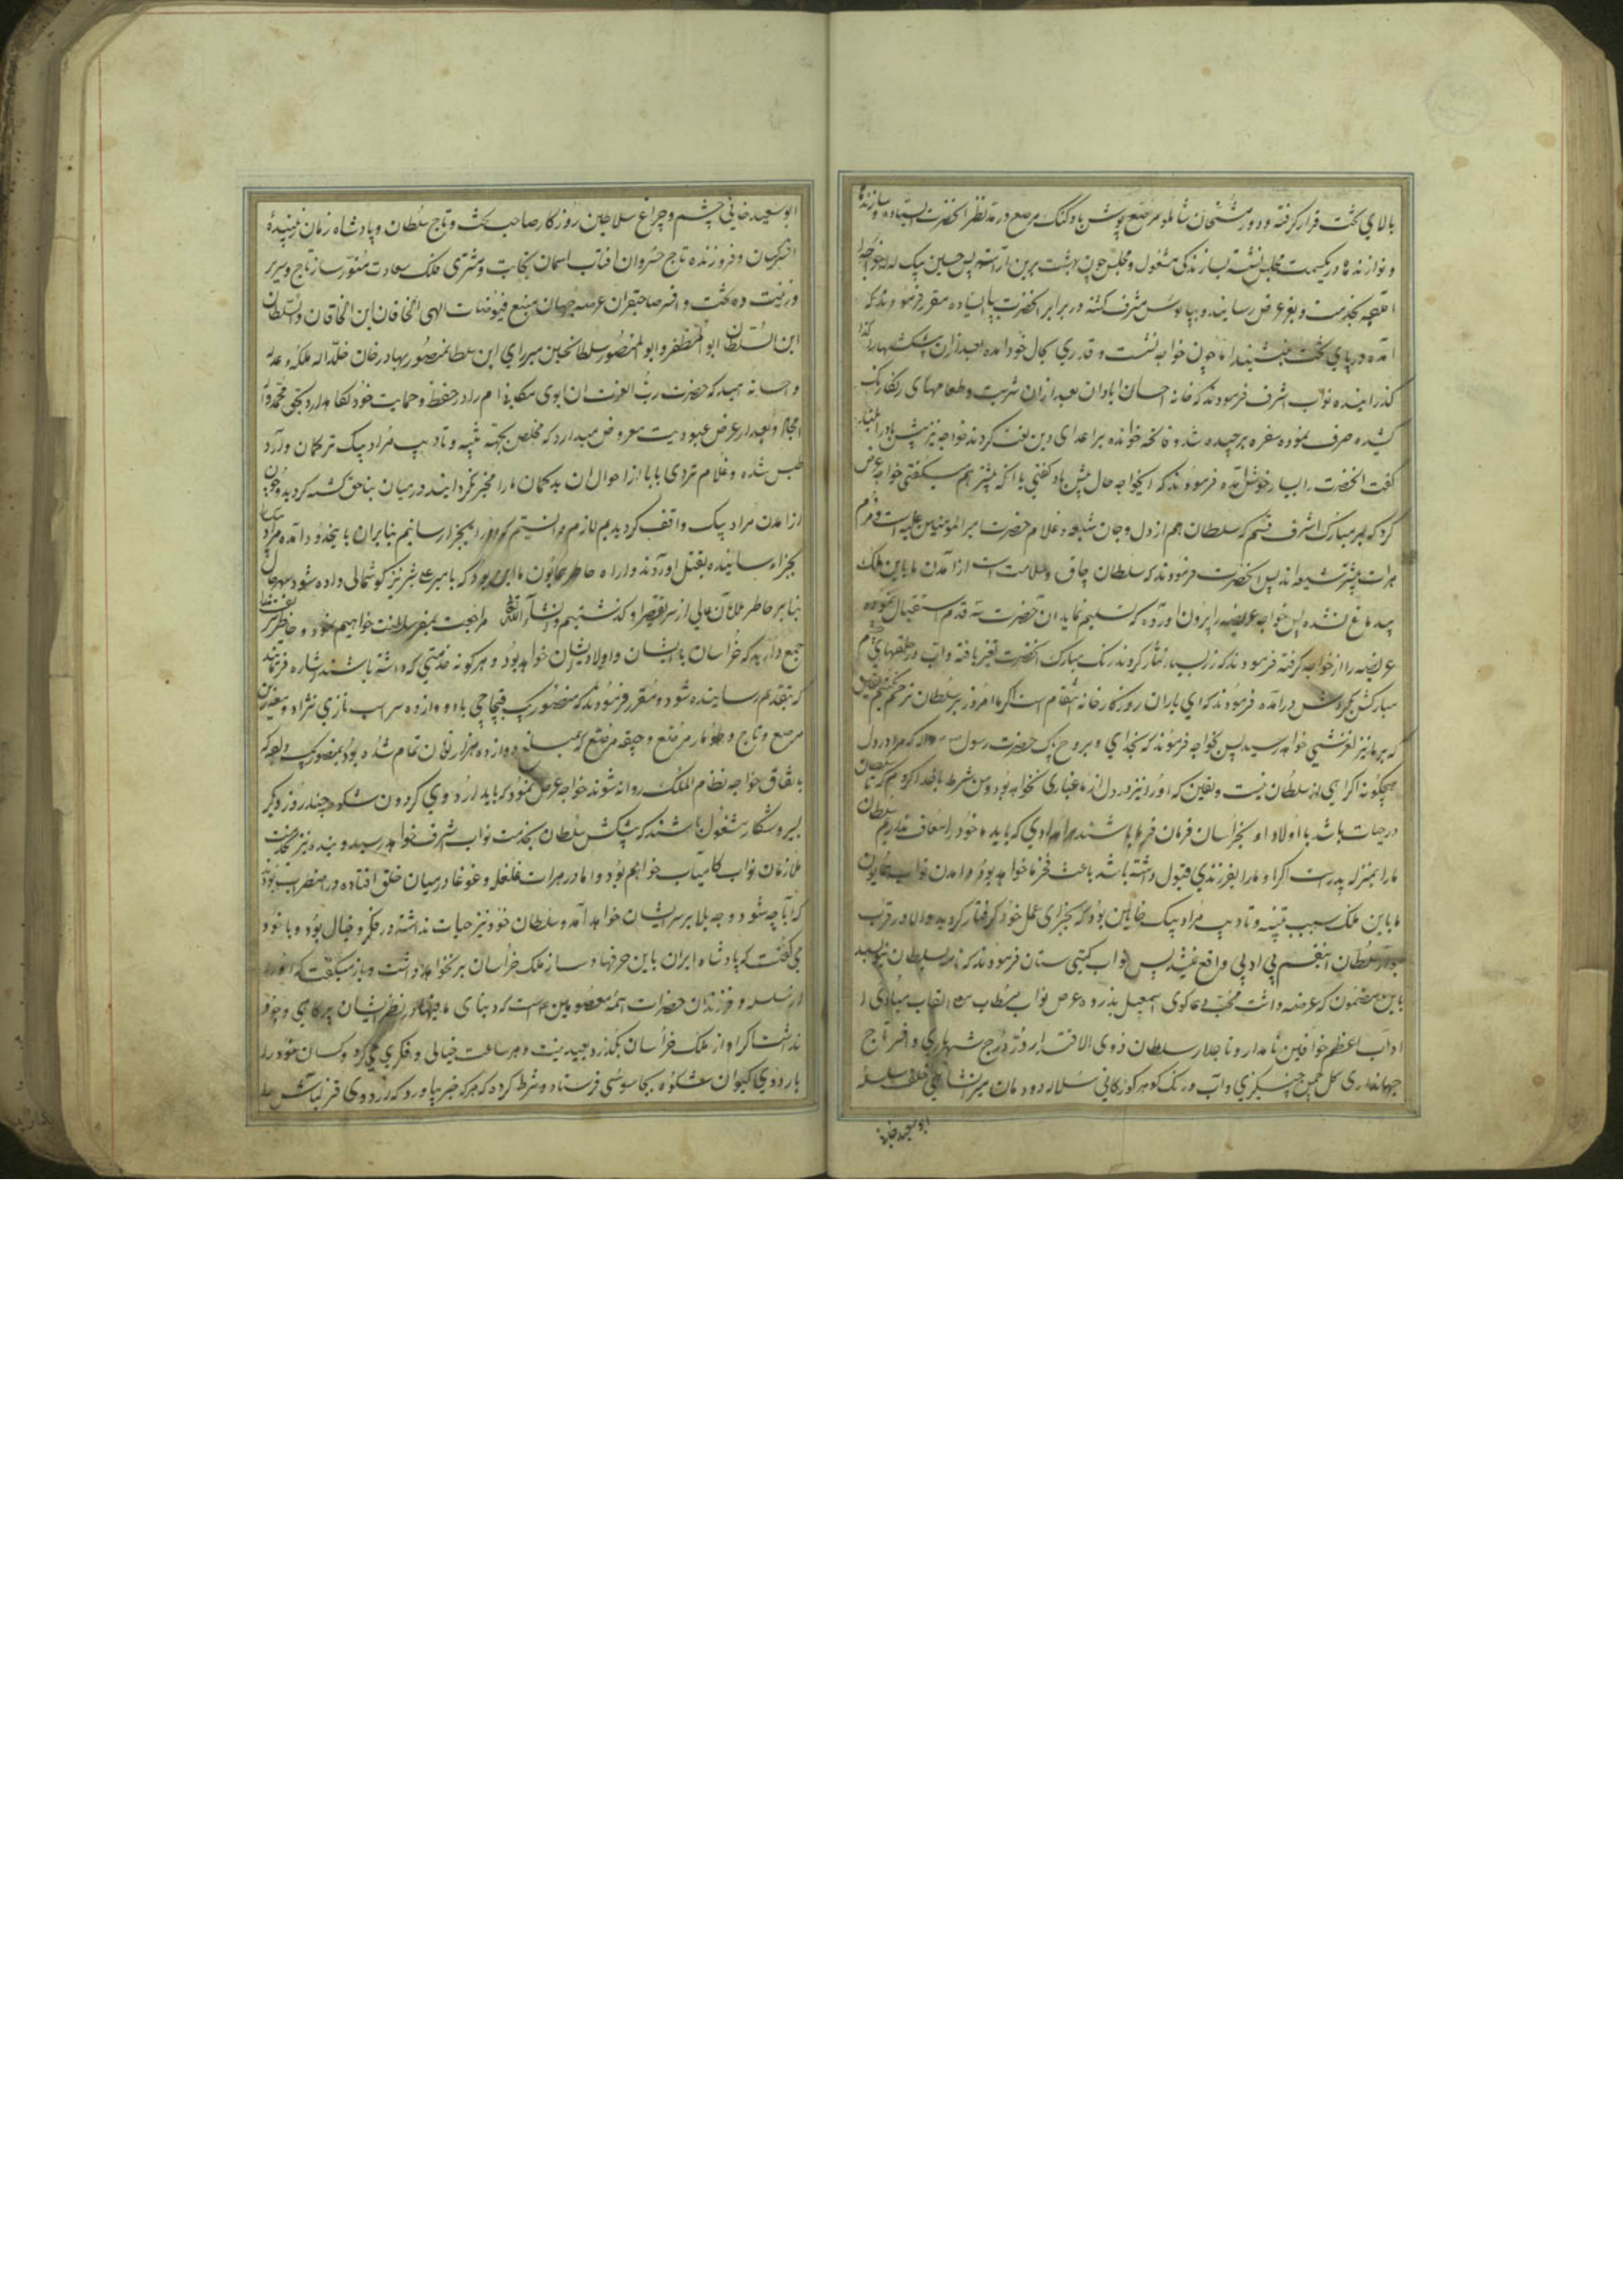 بالای تخت قرار گرفته و دورمش خان شاملو مرصع پوش با دگنک مرصع در مد نظر آنحضرت ایستاده و سازنده
و نوازنده ها در یکسمت مجلس نشسته بسازندگی مشغول و مجلس چون بهشت برین آراسته پس حسین بیک لله خواجه را
بخدمت و بعز عرض رسانیده و بپابوس مشرف گشته در برابر آنحضرت بپا ایستاده مقرر فرمودند که
آمده در پای تخت بنشیند اما چون خواجه نشست و قدری بحال خود آمده بعد از آن پیشکشها را
گذرانیده نواب اشرف فرمودند که خانه احسان آبادان بعد از آن شربت و طعامهای رنگارنگ
کشیده صرف نموده سفره برچیده شد و فاتحه خوانده بر اعدای دین لعنت کردند خواجه نیز بیش باد بلند
گفت آنحضرت را بسیار خوش آمده فرمودند که ایخواجه حال بیش باد گفتی یا آنکه پیشتر هم میگفتی خواجه عرض
کرد که بسر مبارک اشرف قسم که سلطان هم از دل و جان شیعه و غلام حضرت امیر المومنین علیه است و مردم
هرات بیشتر شیعه اند پس آنحضرت فرمودند که سلطان چاق و سلامت است از آمدن ما باین ملک
بیدماغ نشده پس خواجه عریضه را بیرون آورده که تسلیم نماید آن حضرت سه قدم استقبال نموده
عریضه را از خواجه گرفته فرمودند که زر بسیار نثار کردند رنگ مبارک آنحضرت تغیر یافته و آب در حلقهای چشم
مبارکش بگردش در آمده فرمودند که ای یاران روزگار خانه انتقام است اگر ما امروز بر سلطان ترحم نکنیم یقین
که بر ما نیز لغزشی خواهد رسید پس بخواجه فرمودند که بخدای و بروح پاک حضرت رسول که مرا در دل
هیچگونه اکراهی از سلطان نیست و یقین که او را نیز در دل از ما غباری نخواهد بود و من شرط با خدا کردم که تا سلطان
در حیات باشد با اولاد او بخراسان فرمان فرما باشند و امدادی که باید ما خود را معاف نداریم سلطان
ما را بمنزله پدرست اگر او ما را بفرزندی قبول داشته باشد باعث فخر ما خواهد بود و آمدن نواب همایون
ما باین ملک بسبب تنبیه و تادیب مراد بیک خاین بود که بجزای عمل خود گرفتار گردید و الا در قرب
جوار سلطان اینقسم بی ادبی واقع نمیشد پس نواب گیتی ستان فرمودند که نامه سلطان بنویسید
باین مضمون که عرضه داشت محب دعاگوی اسمعیل بذروه عرض نواب مستطاب القاب مبادی
آداب اعظم خواقین نامدار و تاجدار سلطان ذوی الاقتدار در درج شهریاری و اختر تاج
جهانداری گل چمن چنگیزی و آب و رنگ گوهر گورکانی سلاله دودمان میرانشاهی خلف سلسله
ابو سعید خانی
ابو سعید خانی چشم و چراغ سلاطین روزگار صاحب تخت و تاج سلطان و پادشاه زمان زیبنده
و فروزنده تاج خسروان آفتاب آسمان نجابت و مشتری فلک سعادت منور ساز تاج و سریر
و زینت ده تخت و افسر صاحبقران عرصه جهان منبع فیوضات الهی الخاقان ابن الخاقان و السلطان
ابن السلطان ابو المظفر و ابو المنصور سلطان حسین میرزای ابن سلطان منصور بهادر خان خلد الله ملکه و عدله
و احسانه امید که حضرت رب العزت آن ابوی مکانی ام را در حفظ و حمایت خود نگاه بدارد بحق محمد و آله
الامجاد و بعد از عرض عبودیت معروض میدارد که مخلص بجهة تنبیه و تادیب مراد بیک ترکمان وارد
طبس شده و غلام تردی بابا از احوال آن بدگمان ما را مخبر نگردانیده در میان بناحق کشته گردید و چون
از آمدن مراد بیک واقف گردیدیم لازم دانستیم که او را بجزا رسانیم بنابران با بیخود آمده مراد بیک را
بجزا رسانیده بقتل آوردند و اراده خاطر همایون ما این بود که بامیر علی شیر نیز گوشمالی داده شود
بنا بر خاطر ملازمان عالی از سر تقصیر او گذشتیم و انشاء الله تعالی مراجعت بمقر سلطنت خواهیم نمود و خاطر شریف
جمع دارید که خراسان با ایشان و اولاد ایشان خواهد بود و هر گونه خدمتی که داشته باشند اشاره فرمایند
که بتقدیم رسانیده شود و مقرر فرمودند که منصور بیک قبچاچی با دوازده سر اسب تازی نژاد و
مرصع و تاج و طومار مرصع و جیقه مرصع که مبلغ دوازده هزار تومان تمام شده بود بمنصور بیک داده که
باتفاق خواجه نظام الملک روانه شوند خواجه عرض نمود که باید اردوی گردون شکوه چند روز دیگر
بسیر و شکار مشغول باشند که پیشکش سلطان بخدمت نواب اشرف خواهد رسید و بنده نیز بخدمت
ملازمان نواب کامیاب خواهم بود و اما در هرات غلغله و غوغا در میان خلق افتاده در اضطراب بودند
که آیا چه شود و چه بلا بر سر ایشان خواهد آمد و سلطان خود نیز حیات نداشته در فکر و خیال بود و با خود
می گفت که پادشاه ایران باین حرفها دست از ملک خراسان بر نخواهد داشت و باز میگفت که او از
سلسله و فرزندان حضرات ائمه معصومین است که دنیای دنی در نظر ایشان پر کاهی وجود
نداشت اگر او از ملک خراسان بگذرد بعید نیست و هر ساعت خیالی و فکری میکرد و کسان خود را
باردوی کیوان شکوه بجاسوسی فرستاد و شرط کرده که هر که خبر بیاورد که اردوی قزلباش